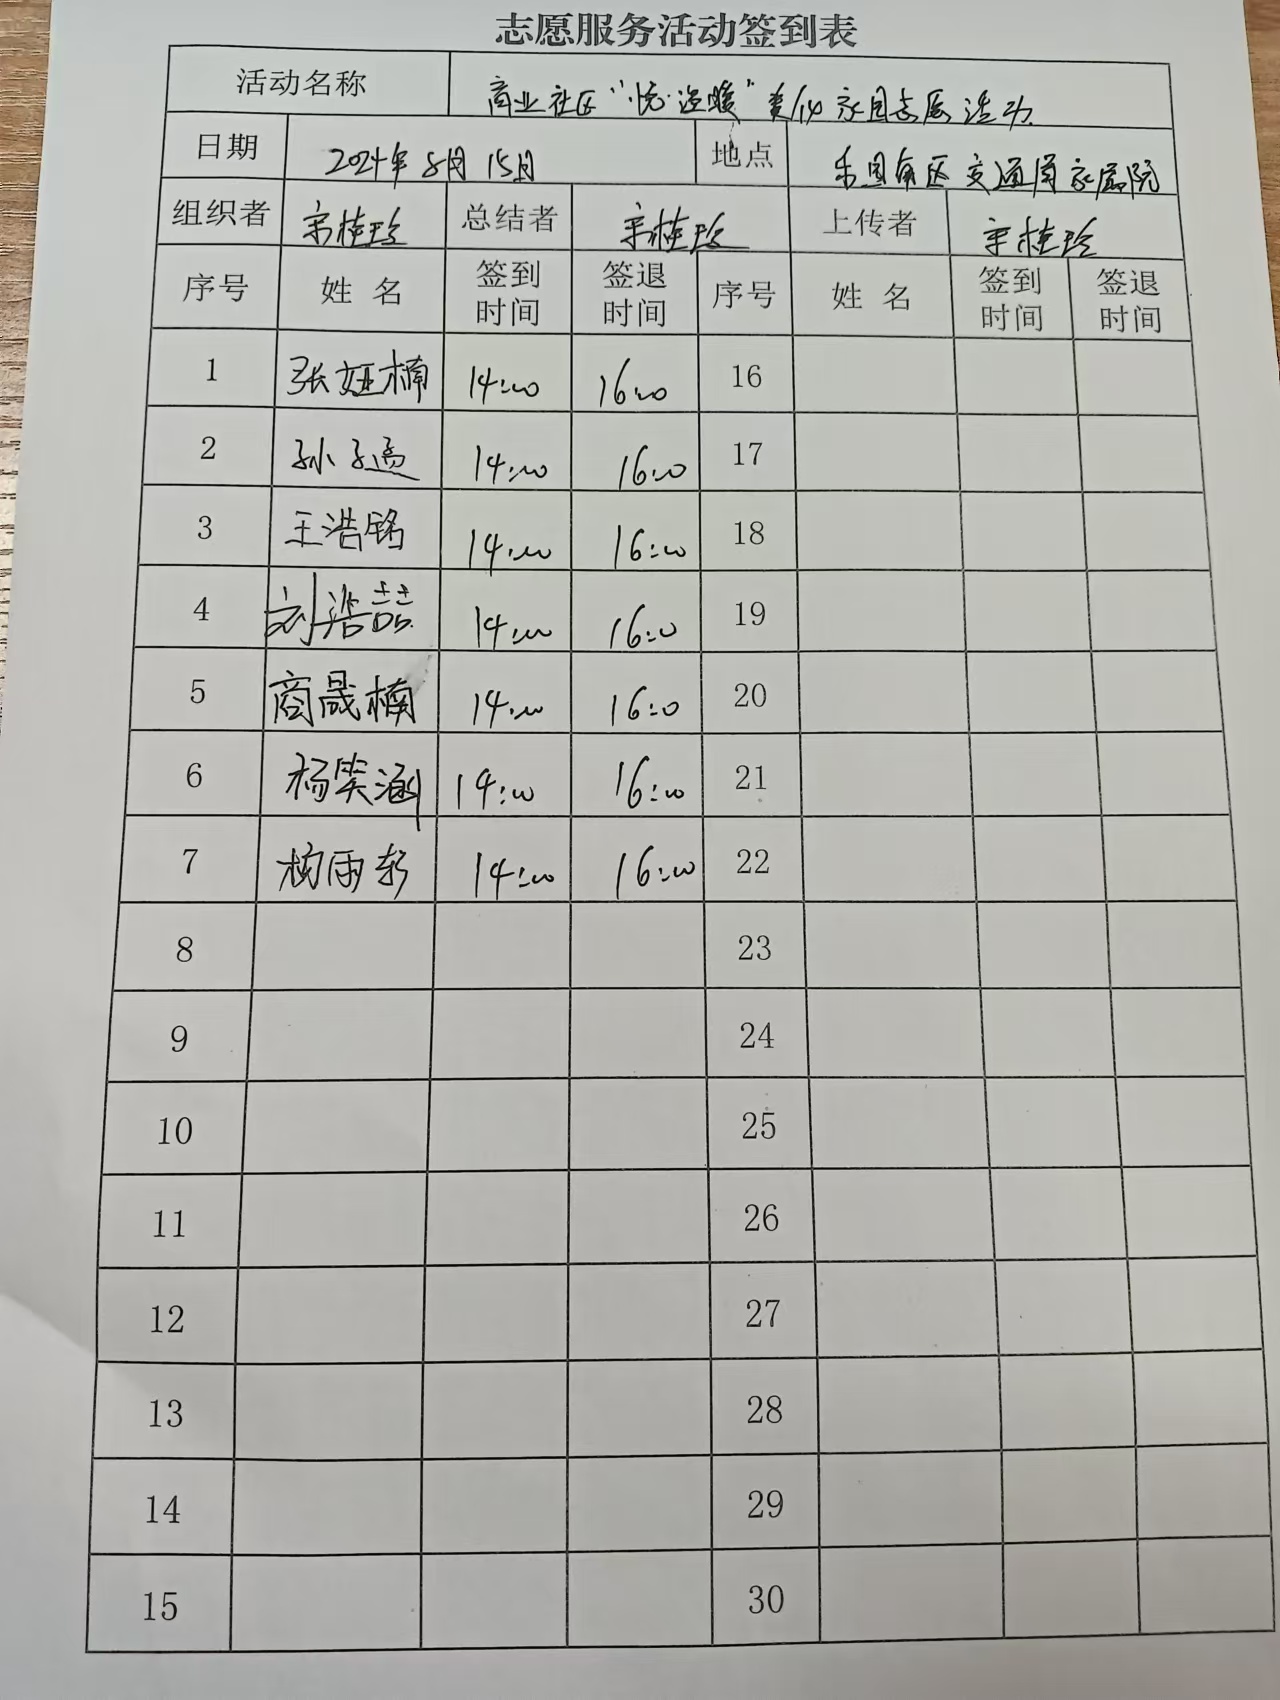 志愿服务活动签到表
活动名称 商业社区“悦·温暖”美化家园志愿活动
日期 2024年8月15日 地点 乐园南区交通局家属院
组织者 宋桂玲 总结者 宋桂玲 上传者 宋桂玲
序号 姓名 签到时间 签退时间 序号 姓名 签到时间 签退时间
1 张娅楠 14:00 16:00 16
2 孙子 14:00 16:00 17
3 王浩铭 14:00 16:00 18
4 刘浩喆 14:00 16:00 19
5 商晟楠 14:00 16:00 20
6 杨奕涵 14:00 16:00 21
7 杨雨轩 14:00 16:00 22
8 23
9 24
10 25
11 26
12 27
13 28
14 29
15 30